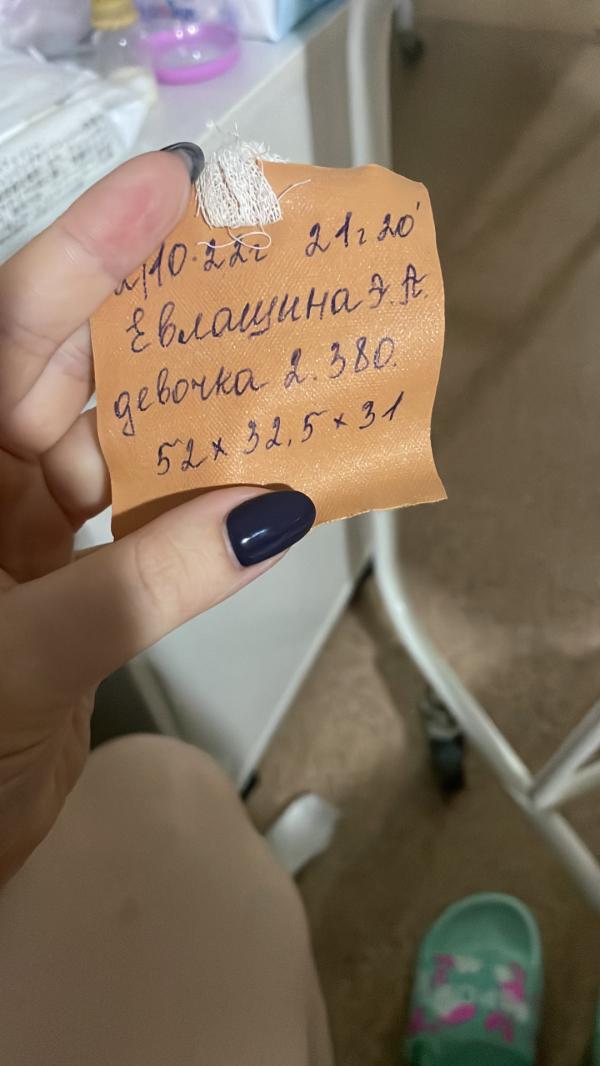 10.22г 21г 20'
Евлашина Э.А.
девочка 2.380.
52 x 32,5 x 31